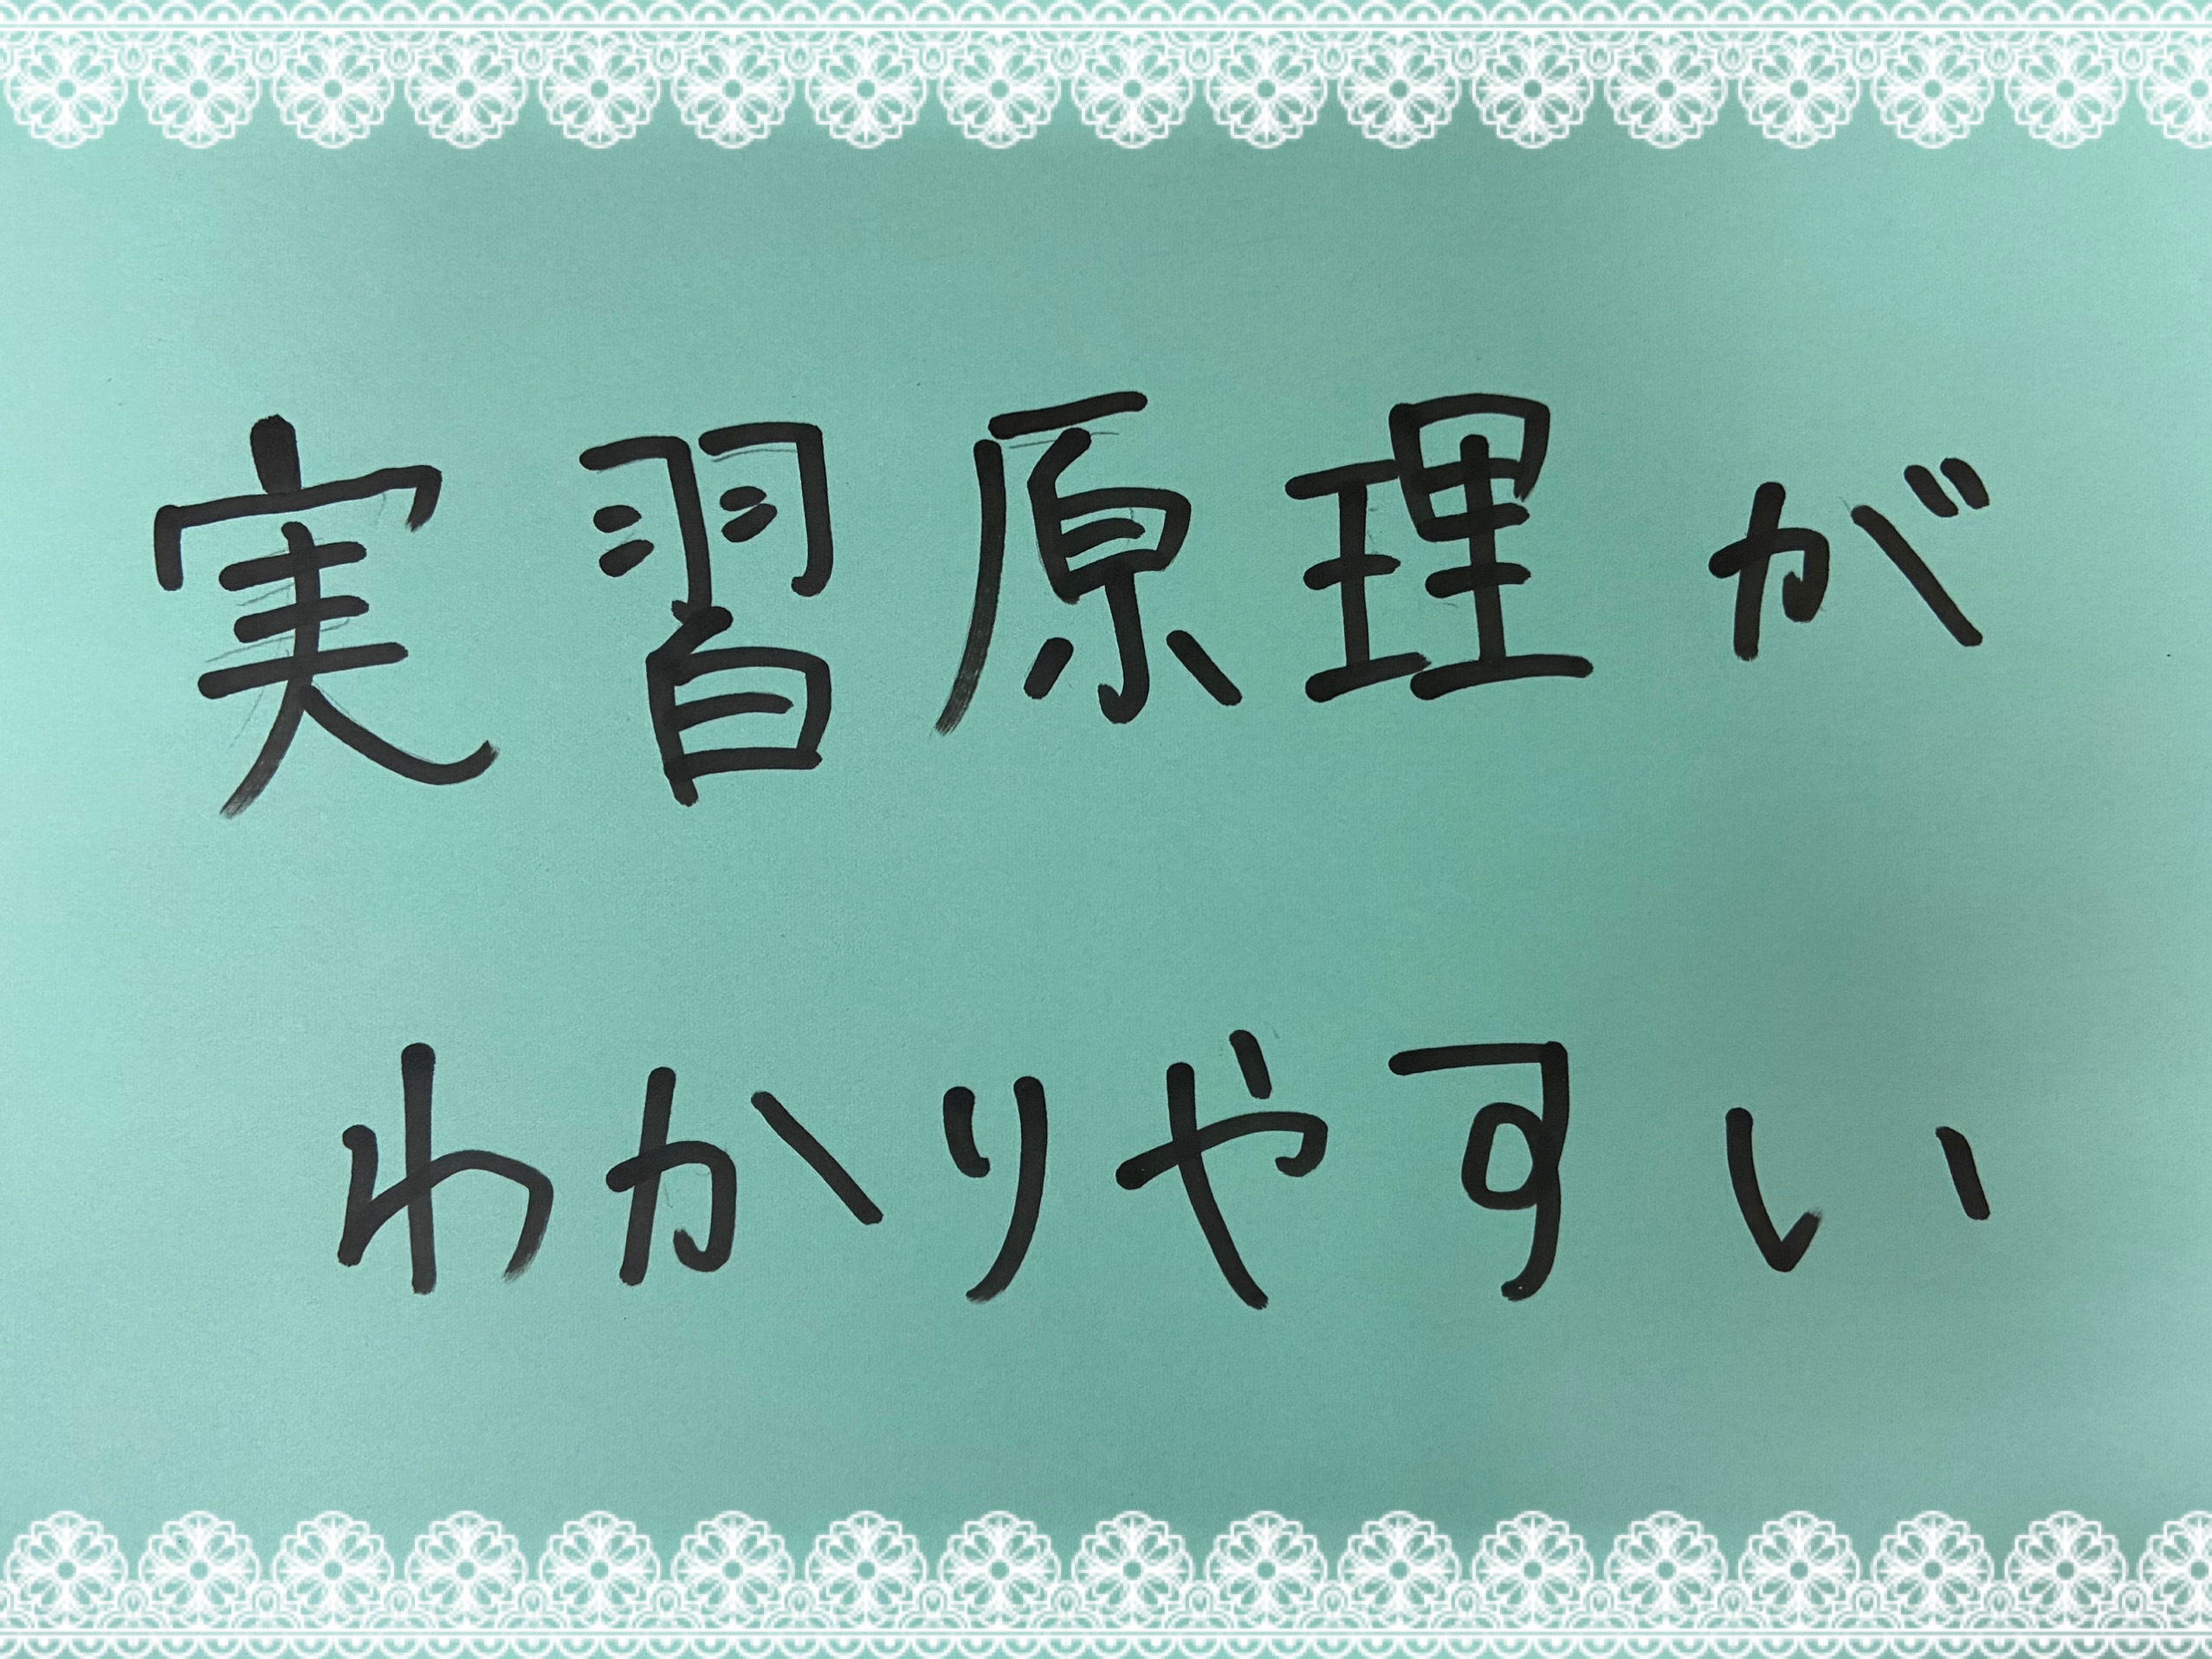 実習原理が
わかりやすい